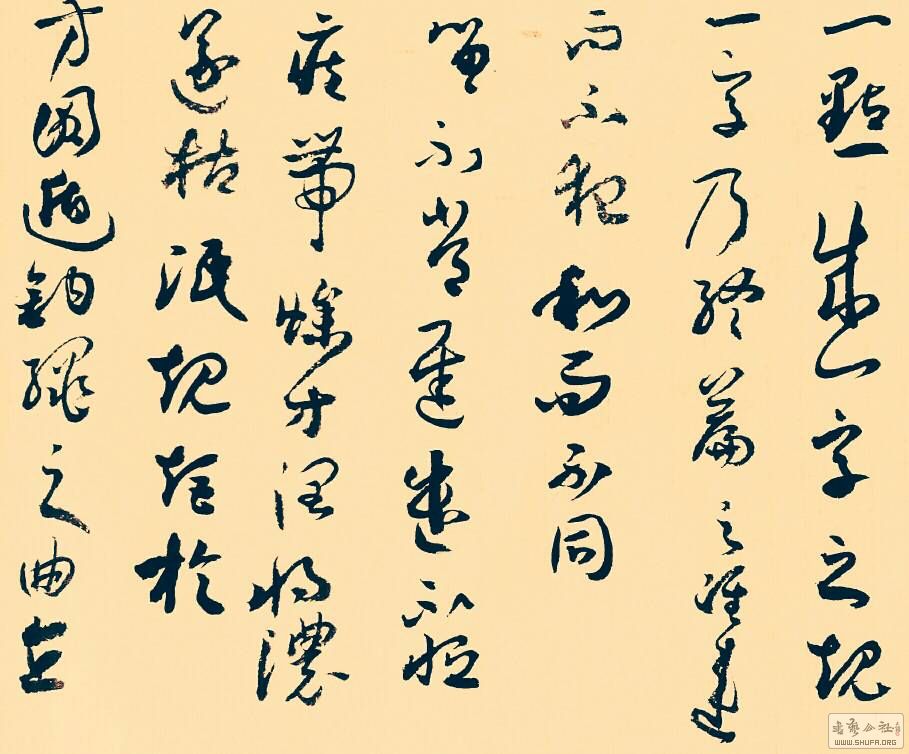 一點成一字之規
一字乃終篇之准違
而不犯和而不同
留不常遲遣不恒
疾帶燥方潤將濃
遂枯泯規矩於
方圓遁鉤繩之曲直
書藝公社
WWW.SHUFA.ORG